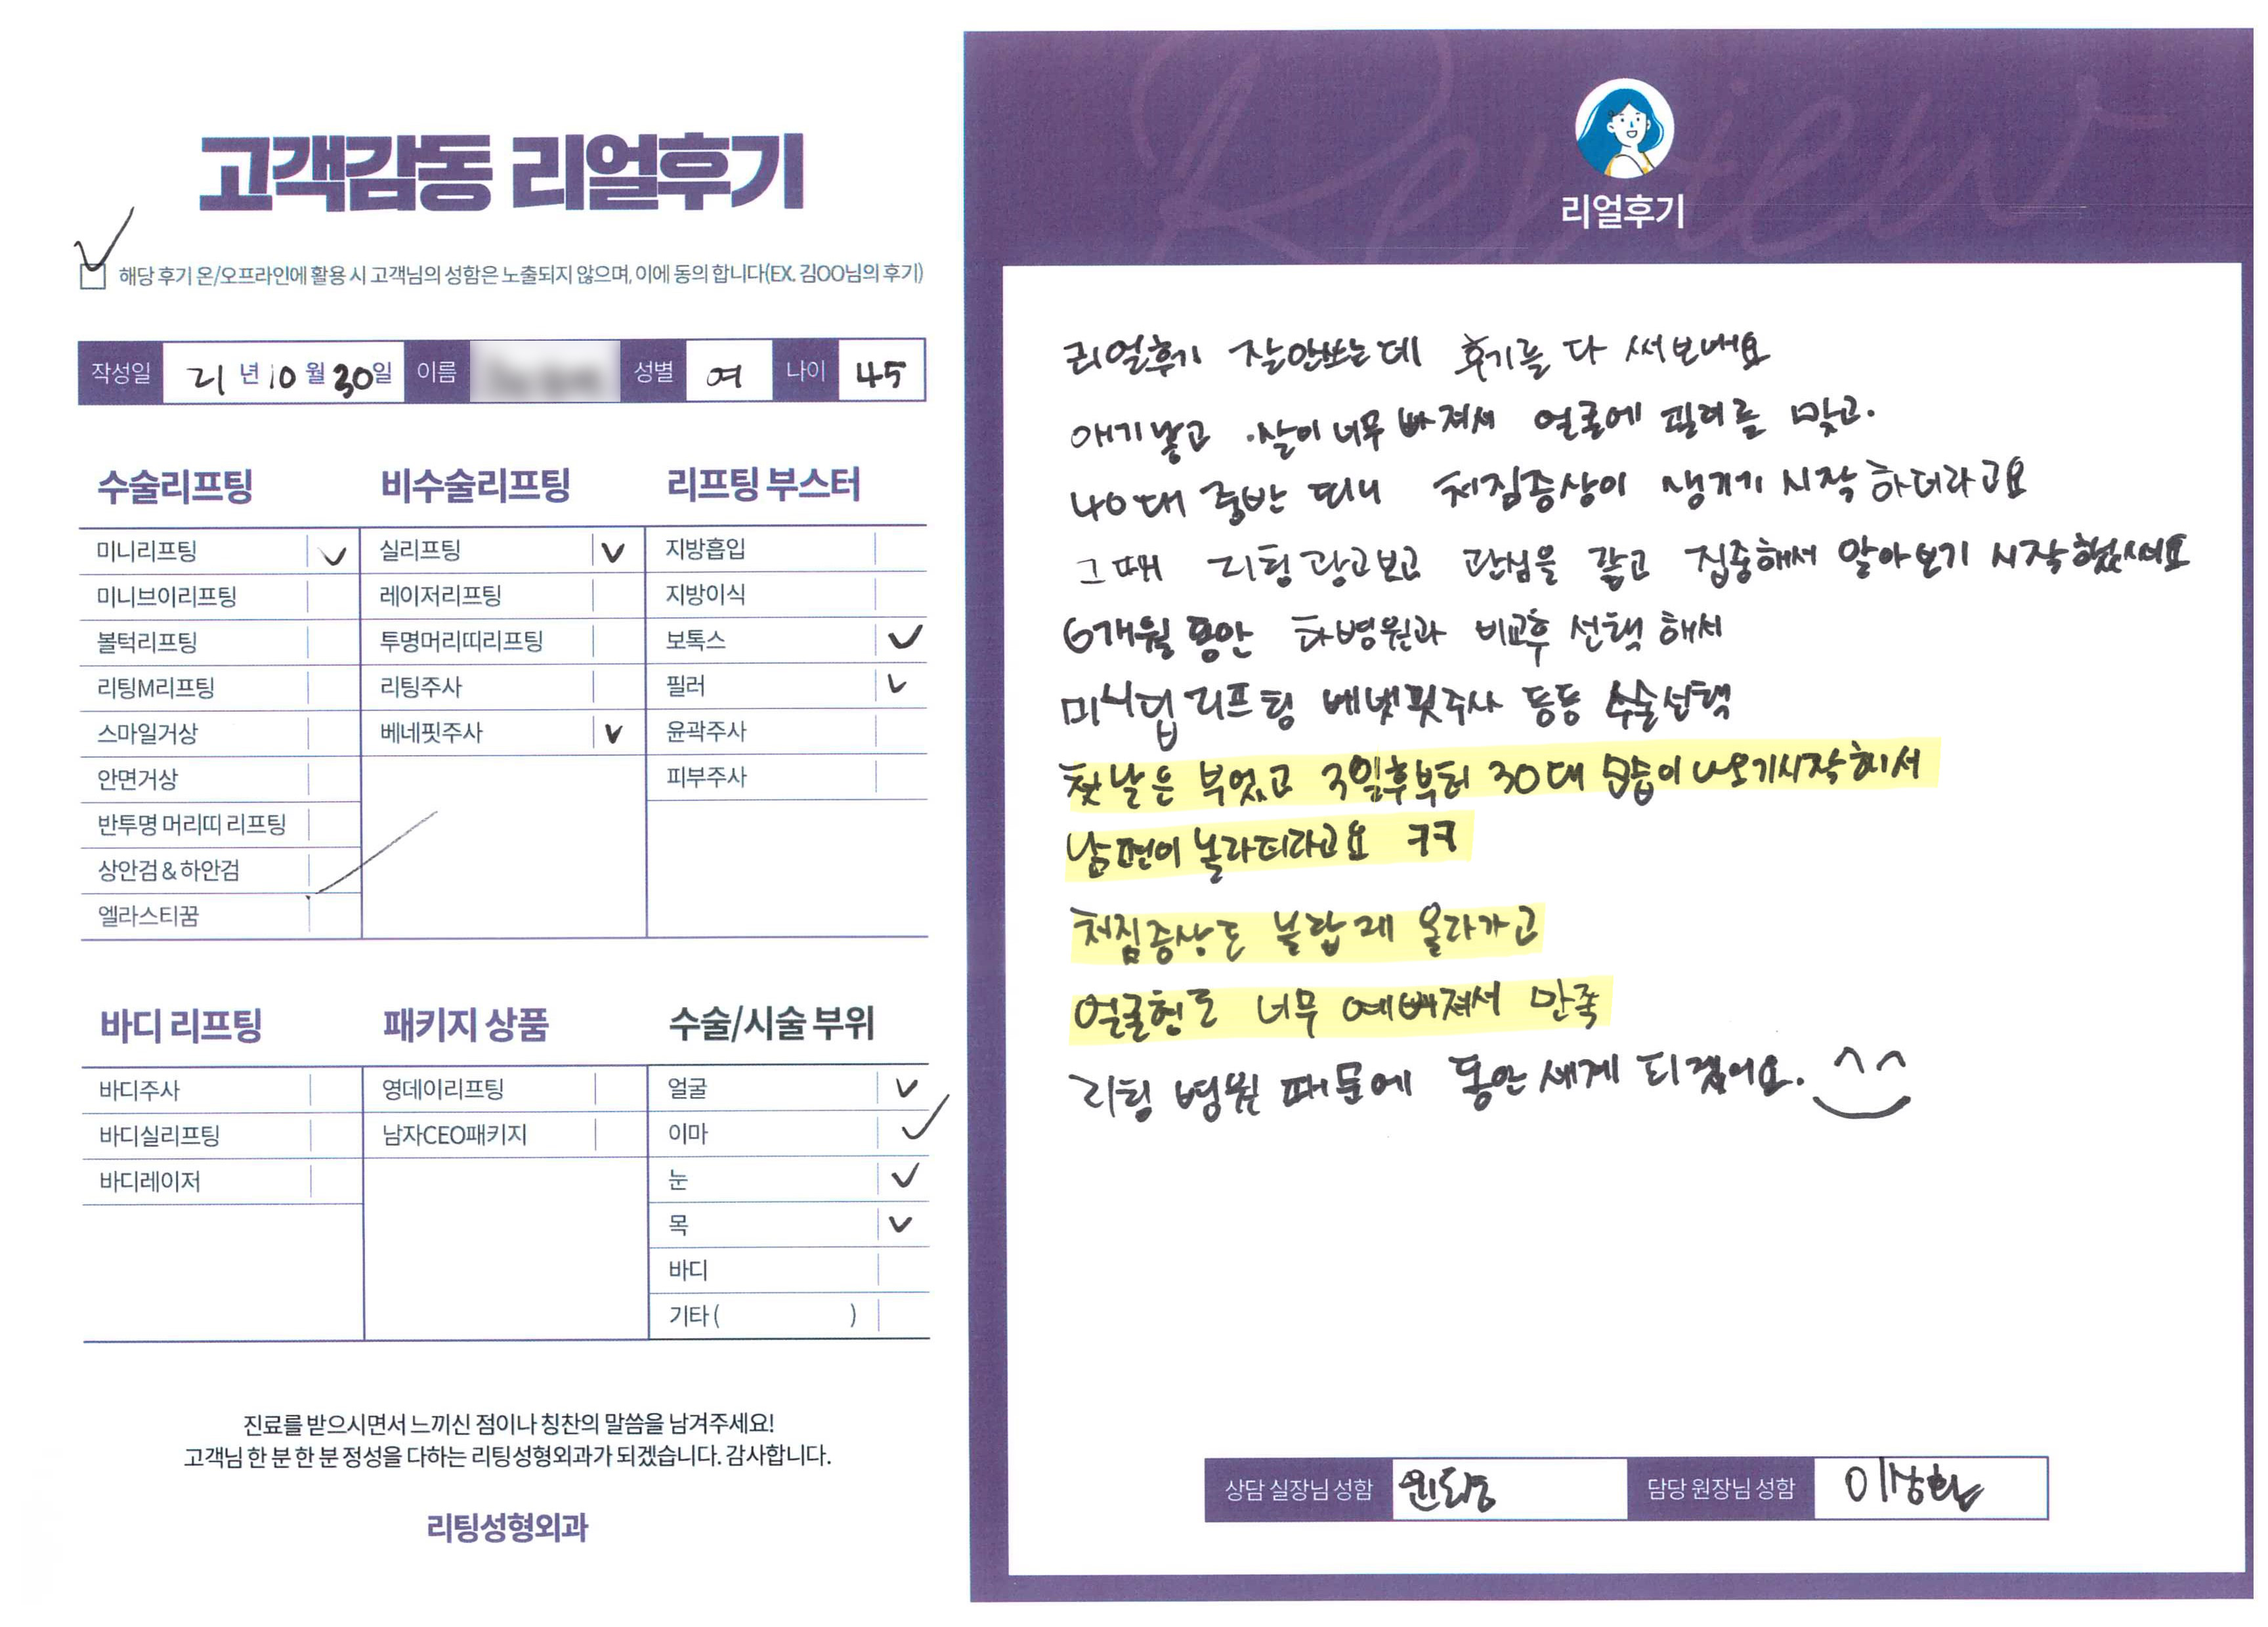 고객감동 리얼후기
해당 후기 온/오프라인에 활용 시 고객님의 성함은 노출되지 않으며, 이에 동의 합니다(EX. 김OO님의 후기)
작성일 21년 10월 30일 이름 성별 여 나이 45
수술리프팅
미니리프팅
미니브이리프팅
볼턱리프팅
리팅M리프팅
스마일거상
안면거상
반투명 머리띠 리프팅
상안검 & 하안검
엘라스티꿈
비수술리프팅
실리프팅
레이저리프팅
투명머리띠리프팅
리팅주사
베네핏주사
리프팅 부스터
지방흡입
지방이식
보톡스
필러
윤곽주사
피부주사
바디 리프팅
바디주사
바디실리프팅
바디레이저
패키지 상품
영데이리프팅
남자CEO패키지
수술/시술 부위
얼굴
이마
눈
목
바디
기타 ( )
진료를 받으시면서 느끼신 점이나 칭찬의 말씀을 남겨주세요!
고객님 한 분 한 분 정성을 다하는 리팅성형외과가 되겠습니다. 감사합니다.
리팅성형외과
Review
리얼후기
리얼후기 잘안쓰는데 후기를 다 써보내요
애기낳고 살이 너무 빠져서 얼굴에 필러를 맞고.
40대 중반 되니 처짐증상이 생기기 시작하더라고요
그때 리팅광고보고 관심을 갖고 집중해서 알아보기 시작했서요
6개월 동안 타병원과 비교후 선택해서
미니딥리프팅 베넷핏주사 등등 수술선택
첫날은 부었고 3일후부터 30대 모습이 나오기시작해서
남편이 놀라더라고요 ㅋㅋ
처짐증상도 놀랍게 올라가고
얼굴형도 너무 예뻐져서 만족
리팅 병원 때문에 동안세계 되겠어요. ^^
상담 실장님 성함 담당 원장님 성함